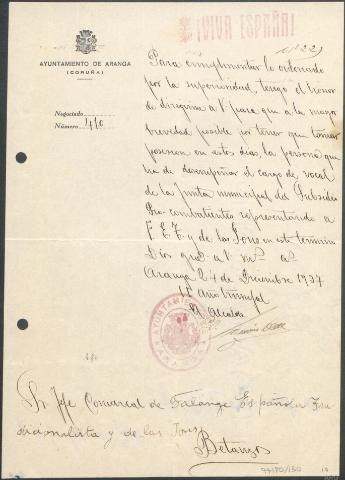 ¡VIVA ESPAÑA!
AYUNTAMIENTO DE ARANGA
(CORUÑA)
Negociado
Número 410
Para cumplimentar lo ordenado
por la superioridad, tengo el honor
de dirigirme a V. para que a la mayor
brevedad posible por tener que tomar
posesion en estos dias, la persona que
ha de desempeñar el cargo de vocal
de la Junta municipal del Subsidio
Pro-combatientes representando a
F.E.T. y de las Jons en este termino
Dios gue a V. m. a.
Aranga 24 de Diciembre 1937
II Año triunfal
El Alcalde
AYUNTAMIENTO
ARANGA
Sr Jefe Comarcal de Falange Española Tra
dicionalista y de las Jons
Betanzos